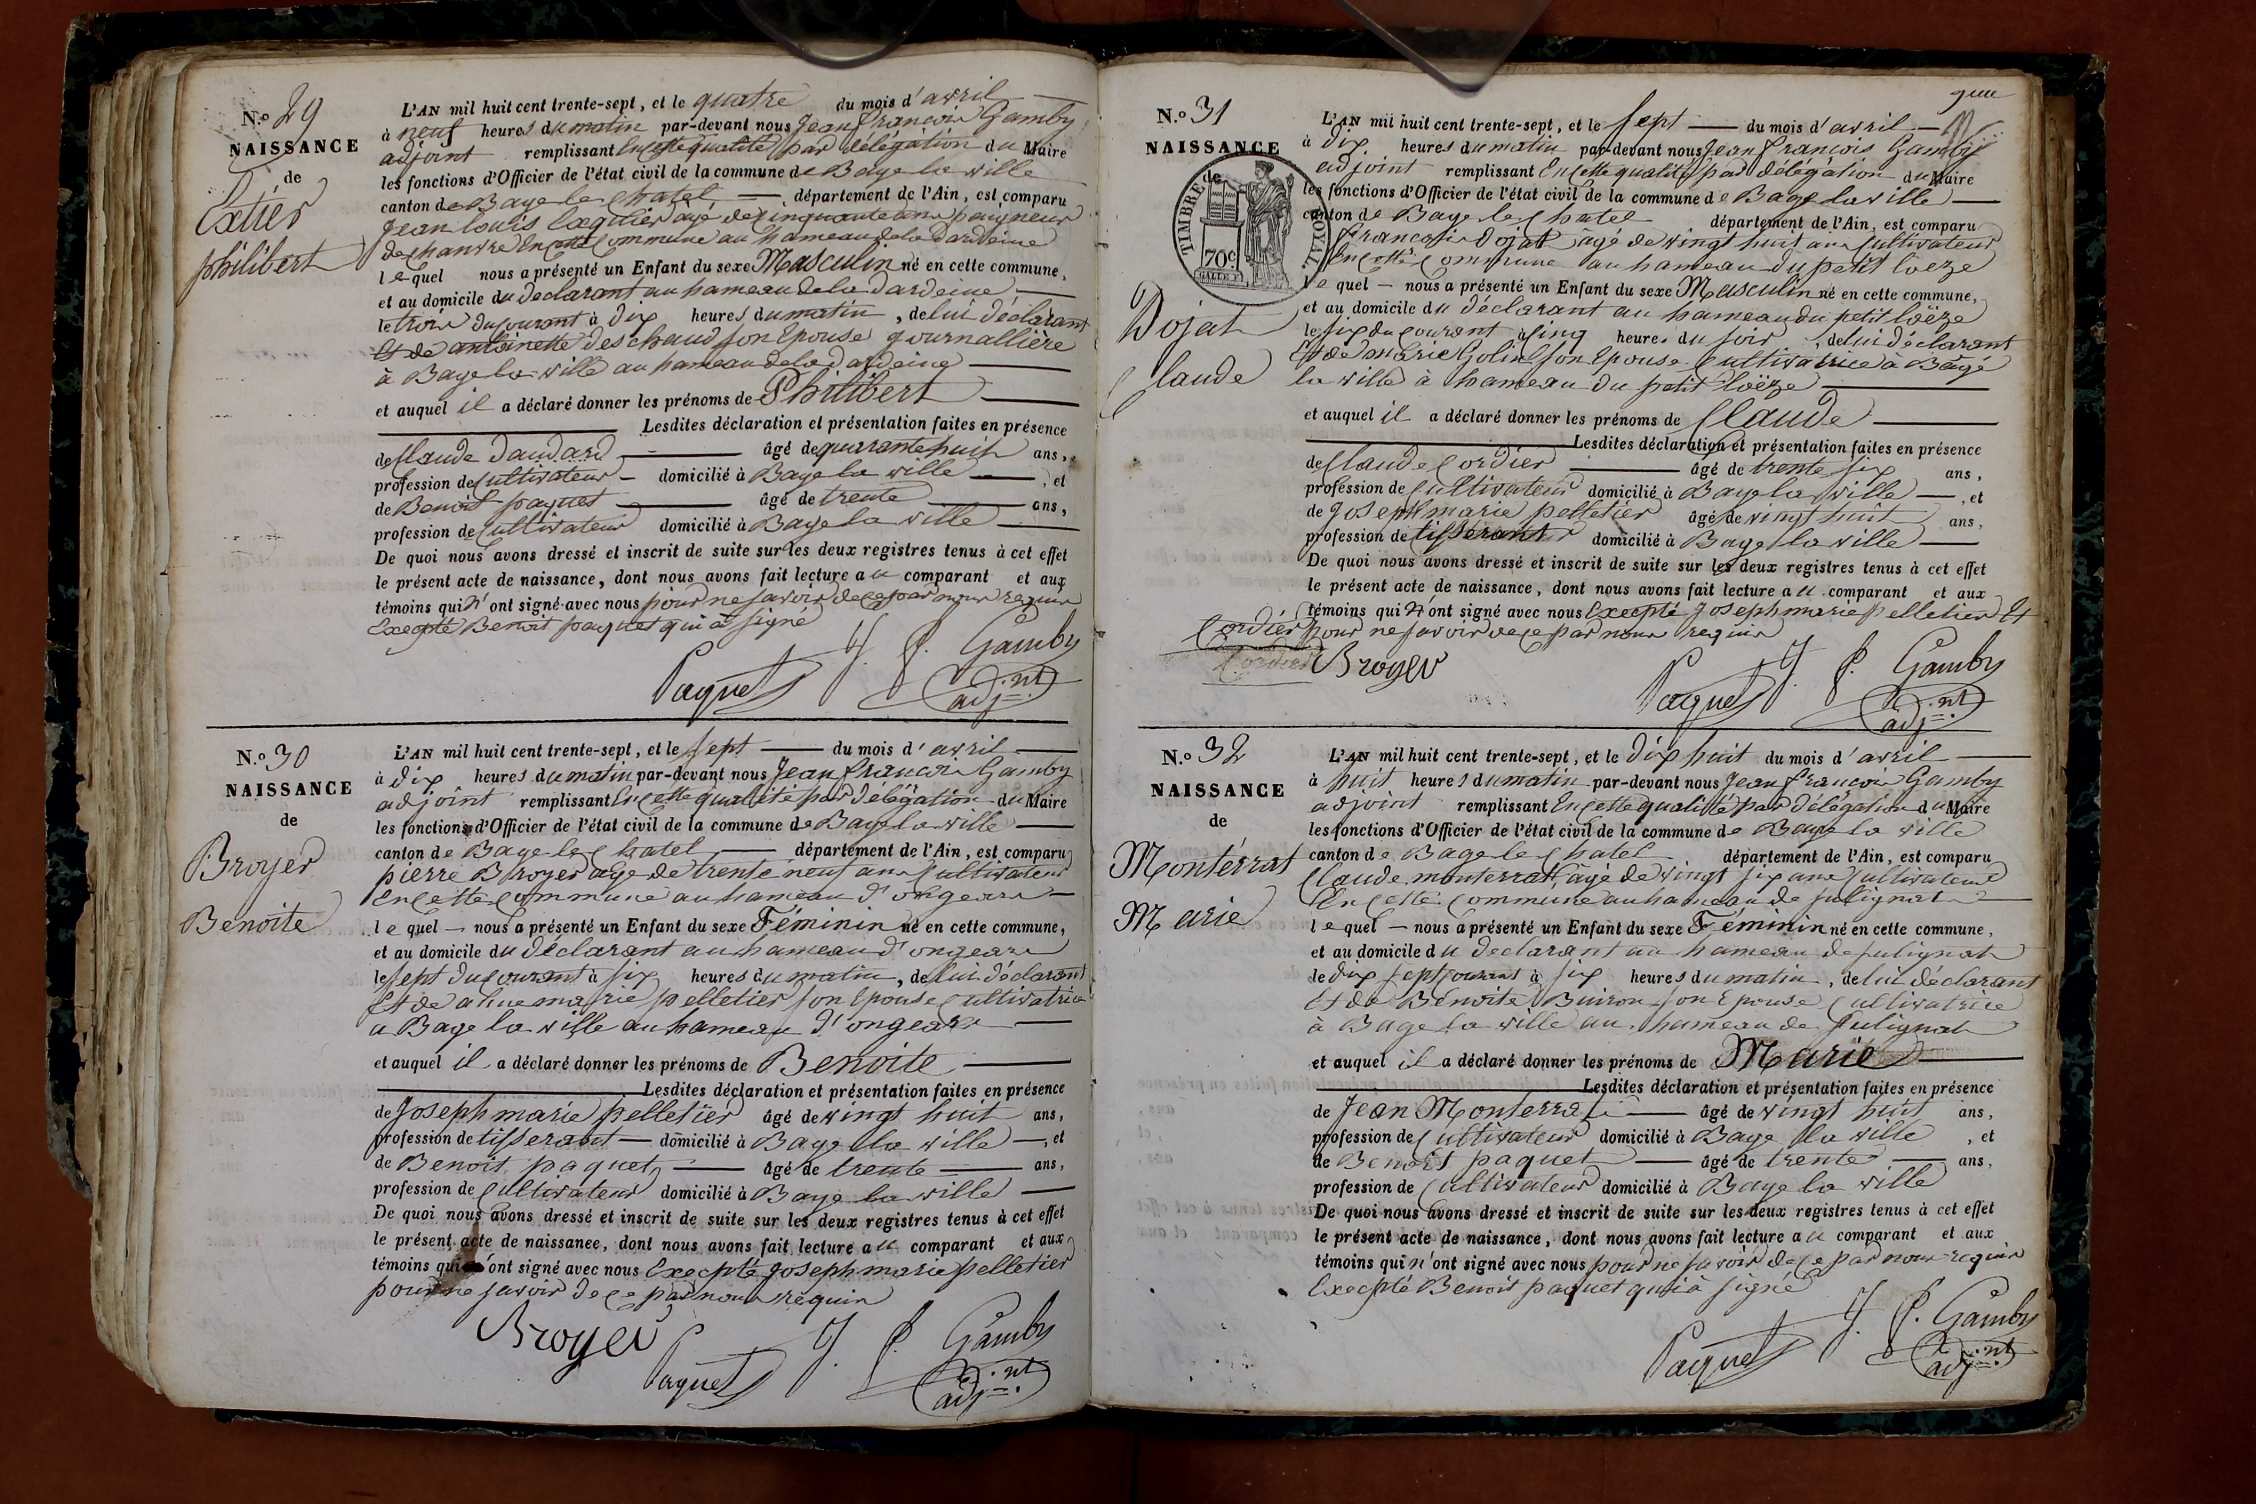 N.º 29
NAISSANCE
de
Extier
philibert
L'AN mil huit cent trente-sept, et le quatre du mois d'avril
à neuf heures du matin par-devant nous Jean françois Gamby
adjoint remplissant En cette qualité par délégation du Maire
les fonctions d'Officier de l'état civil de la commune de Bage la ville
canton de Bage le Chatel département de l'Ain, est comparu
Jean louis agé de Cinquante ans peigneur
de chanvre En cette Commune au hameau de la dardeine
lequel nous a présenté un Enfant du sexe Masculin né en cette commune,
et au domicile du déclarant au hameau de la dardeine
le trois du Courant à dix heures du matin, de lui déclarant
Et de antoinette deschaud son Epouse journallière
à Bage la ville au hameau de la dardeine
et auquel il a déclaré donner les prénoms de Philibert
Lesdites déclaration et présentation faites en présence
de Claude dandard âgé de quarante huit ans,
profession de Cultivateur domicilié à Bage la ville, et
de Benoit paquet âgé de trente ans,
profession de Cultivateur domicilié à Bage la ville
De quoi nous avons dressé et inscrit de suite sur les deux registres tenus à cet effet
le présent acte de naissance, dont nous avons fait lecture au comparant et aux
témoins qui n'ont signé avec nous pour ne savoir de ce par nous requis
Excepté Benoit paquet qui a signé
Paquet J. f. Gamby
adj.nt
N.º 30
NAISSANCE
de
Broyer
Benoite
L'AN mil huit cent trente-sept, et le sept du mois d'avril
à dix heures du matin par-devant nous Jean françois Gamby
adjoint remplissant En cette qualité par délégation du Maire
les fonctions d'Officier de l'état civil de la commune de Bage la ville
canton de Bage le Chatel département de l'Ain, est comparu
pierre Broyer agé de trente neuf ans Cultivateur
En cette Commune au hameau d'ongeare
lequel nous a présenté un Enfant du sexe Féminin né en cette commune,
et au domicile du déclarant au hameau d'ongeare
le sept du Courant à six heures du matin, de lui déclarant
Et de anne marie pelletier son Epouse Cultivatrice
a Bage la ville au hameau d'ongeare
et auquel il a déclaré donner les prénoms de Benoite
Lesdites déclaration et présentation faites en présence
de Joseph marie pelletier âgé de vingt huit ans,
profession de tisserant domicilié à Bage la ville, et
de Benoit paquet âgé de trente ans,
profession de Cultivateur domicilié à Bage la ville
De quoi nous avons dressé et inscrit de suite sur les deux registres tenus à cet effet
le présent acte de naissance, dont nous avons fait lecture au comparant et aux
témoins qui ont signé avec nous Excepté Joseph marie pelletier
pour ne savoir de ce par nous requis
Broyer Paquet J. f. Gamby
adj.nt
N.º 31
NAISSANCE
de
TIMBRE ROYAL.
70c
Dojat
Claude
L'AN mil huit cent trente-sept, et le sept du mois d'avril
à dix heures du matin par-devant nous Jean françois Gamby
adjoint remplissant En cette qualité par délégation du Maire
les fonctions d'Officier de l'état civil de la commune de Bage la ville
canton de Bage le Chatel département de l'Ain, est comparu
francois Dojat âgé de vingt huit ans Cultivateur
En cette Commune au hameau du petit loëze
lequel nous a présenté un Enfant du sexe Masculin né en cette commune,
et au domicile du déclarant au hameau du petit loëze
le six du Courant à Cinq heures du soir, de lui déclarant
Et de marie Golin son Epouse Cultivatrice à Bagé
la ville à hameau du petit loëze
et auquel il a déclaré donner les prénoms de Claude
Lesdites déclaration et présentation faites en présence
de Claude Cordier âgé de trente six ans,
profession de Cultivateur domicilié à Bage la ville, et
de Joseph marie pelletier âgé de vingt huit ans,
profession de tisserant domicilié à Bage la ville
De quoi nous avons dressé et inscrit de suite sur les deux registres tenus à cet effet
le présent acte de naissance, dont nous avons fait lecture au comparant et aux
témoins qui n'ont signé avec nous Excepté Joseph marie pelletier Et
Cordier pour ne savoir de ce par nous requis
Cordier Broyer Paquet J. f. Gamby
adj.nt
N.º 32
NAISSANCE
de
Montérrat
Marie
L'AN mil huit cent trente-sept, et le dix huit du mois d'avril
à huit heures du matin par-devant nous Jean françois Gamby
adjoint remplissant En cette qualité par délégation du Maire
les fonctions d'Officier de l'état civil de la commune de Bage la ville
canton de Bage le Chatel département de l'Ain, est comparu
Claude monterrat âgé de vingt six ans Cultivateur
En cette Commune au hameau de julignat
lequel nous a présenté un Enfant du sexe Féminin né en cette commune,
et au domicile du déclarant au hameau de julignat
le dix sept Courant à six heures du matin, de lui déclarant
Et de Benoite Buiron son Epouse Cultivatrice
à Bage la ville au hameau de julignat
et auquel il a déclaré donner les prénoms de Marie
Lesdites déclaration et présentation faites en présence
de Jean Monterrat âgé de vingt huit ans,
profession de Cultivateur domicilié à Bage la ville, et
de Benoit paquet âgé de trente ans,
profession de Cultivateur domicilié à Bage la ville
De quoi nous avons dressé et inscrit de suite sur les deux registres tenus à cet effet
le présent acte de naissance, dont nous avons fait lecture au comparant et aux
témoins qui n'ont signé avec nous pour ne savoir de ce par nous requis
Excepté Benoit paquet qui à signé
Paquet J. f. Gamby
adj.nt